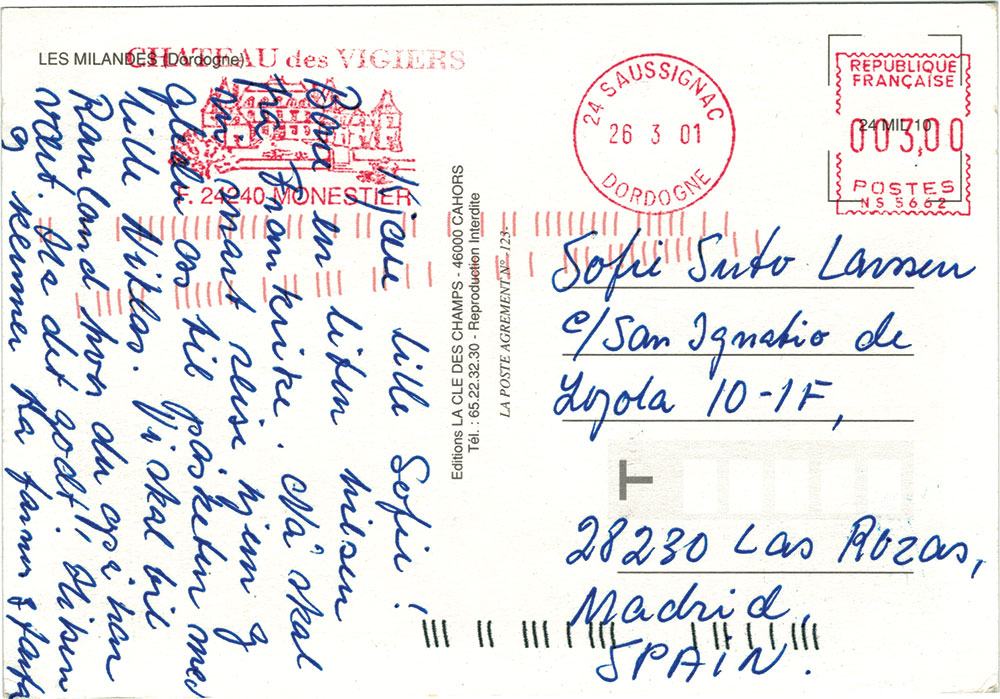 LES MILANDES (Dordogne)
CHATEAU des VIGIERS
F. 24240 MONESTIER
24 SAUSSIGNAC
26 3 01
DORDOGNE
REPUBLIQUE
FRANÇAISE
24 MIL 10
003,00
POSTES
NS 5662
Kjære lille Sofie!
Bare en liten hilsen
fra Frankrike. Nå skal
vi snart reise hjem og
glede os til påsken med
lille Niklas. Vi skal bil
Ranland hvor du også har
vært. Ha det godt! Hilsen
g kLemmer fra farmor & farfar
Editions LA CLE DES CHAMPS - 46000 CAHORS
Tél. : 65.22.32.30 - Reproduction Interdite
LA POSTE AGREMENT N° 123-
Sofie Suto Larssen
c/San Ignatio de
Loyola 10-1F,
T
28230 Las Rozas,
Madrid,
SPAIN.